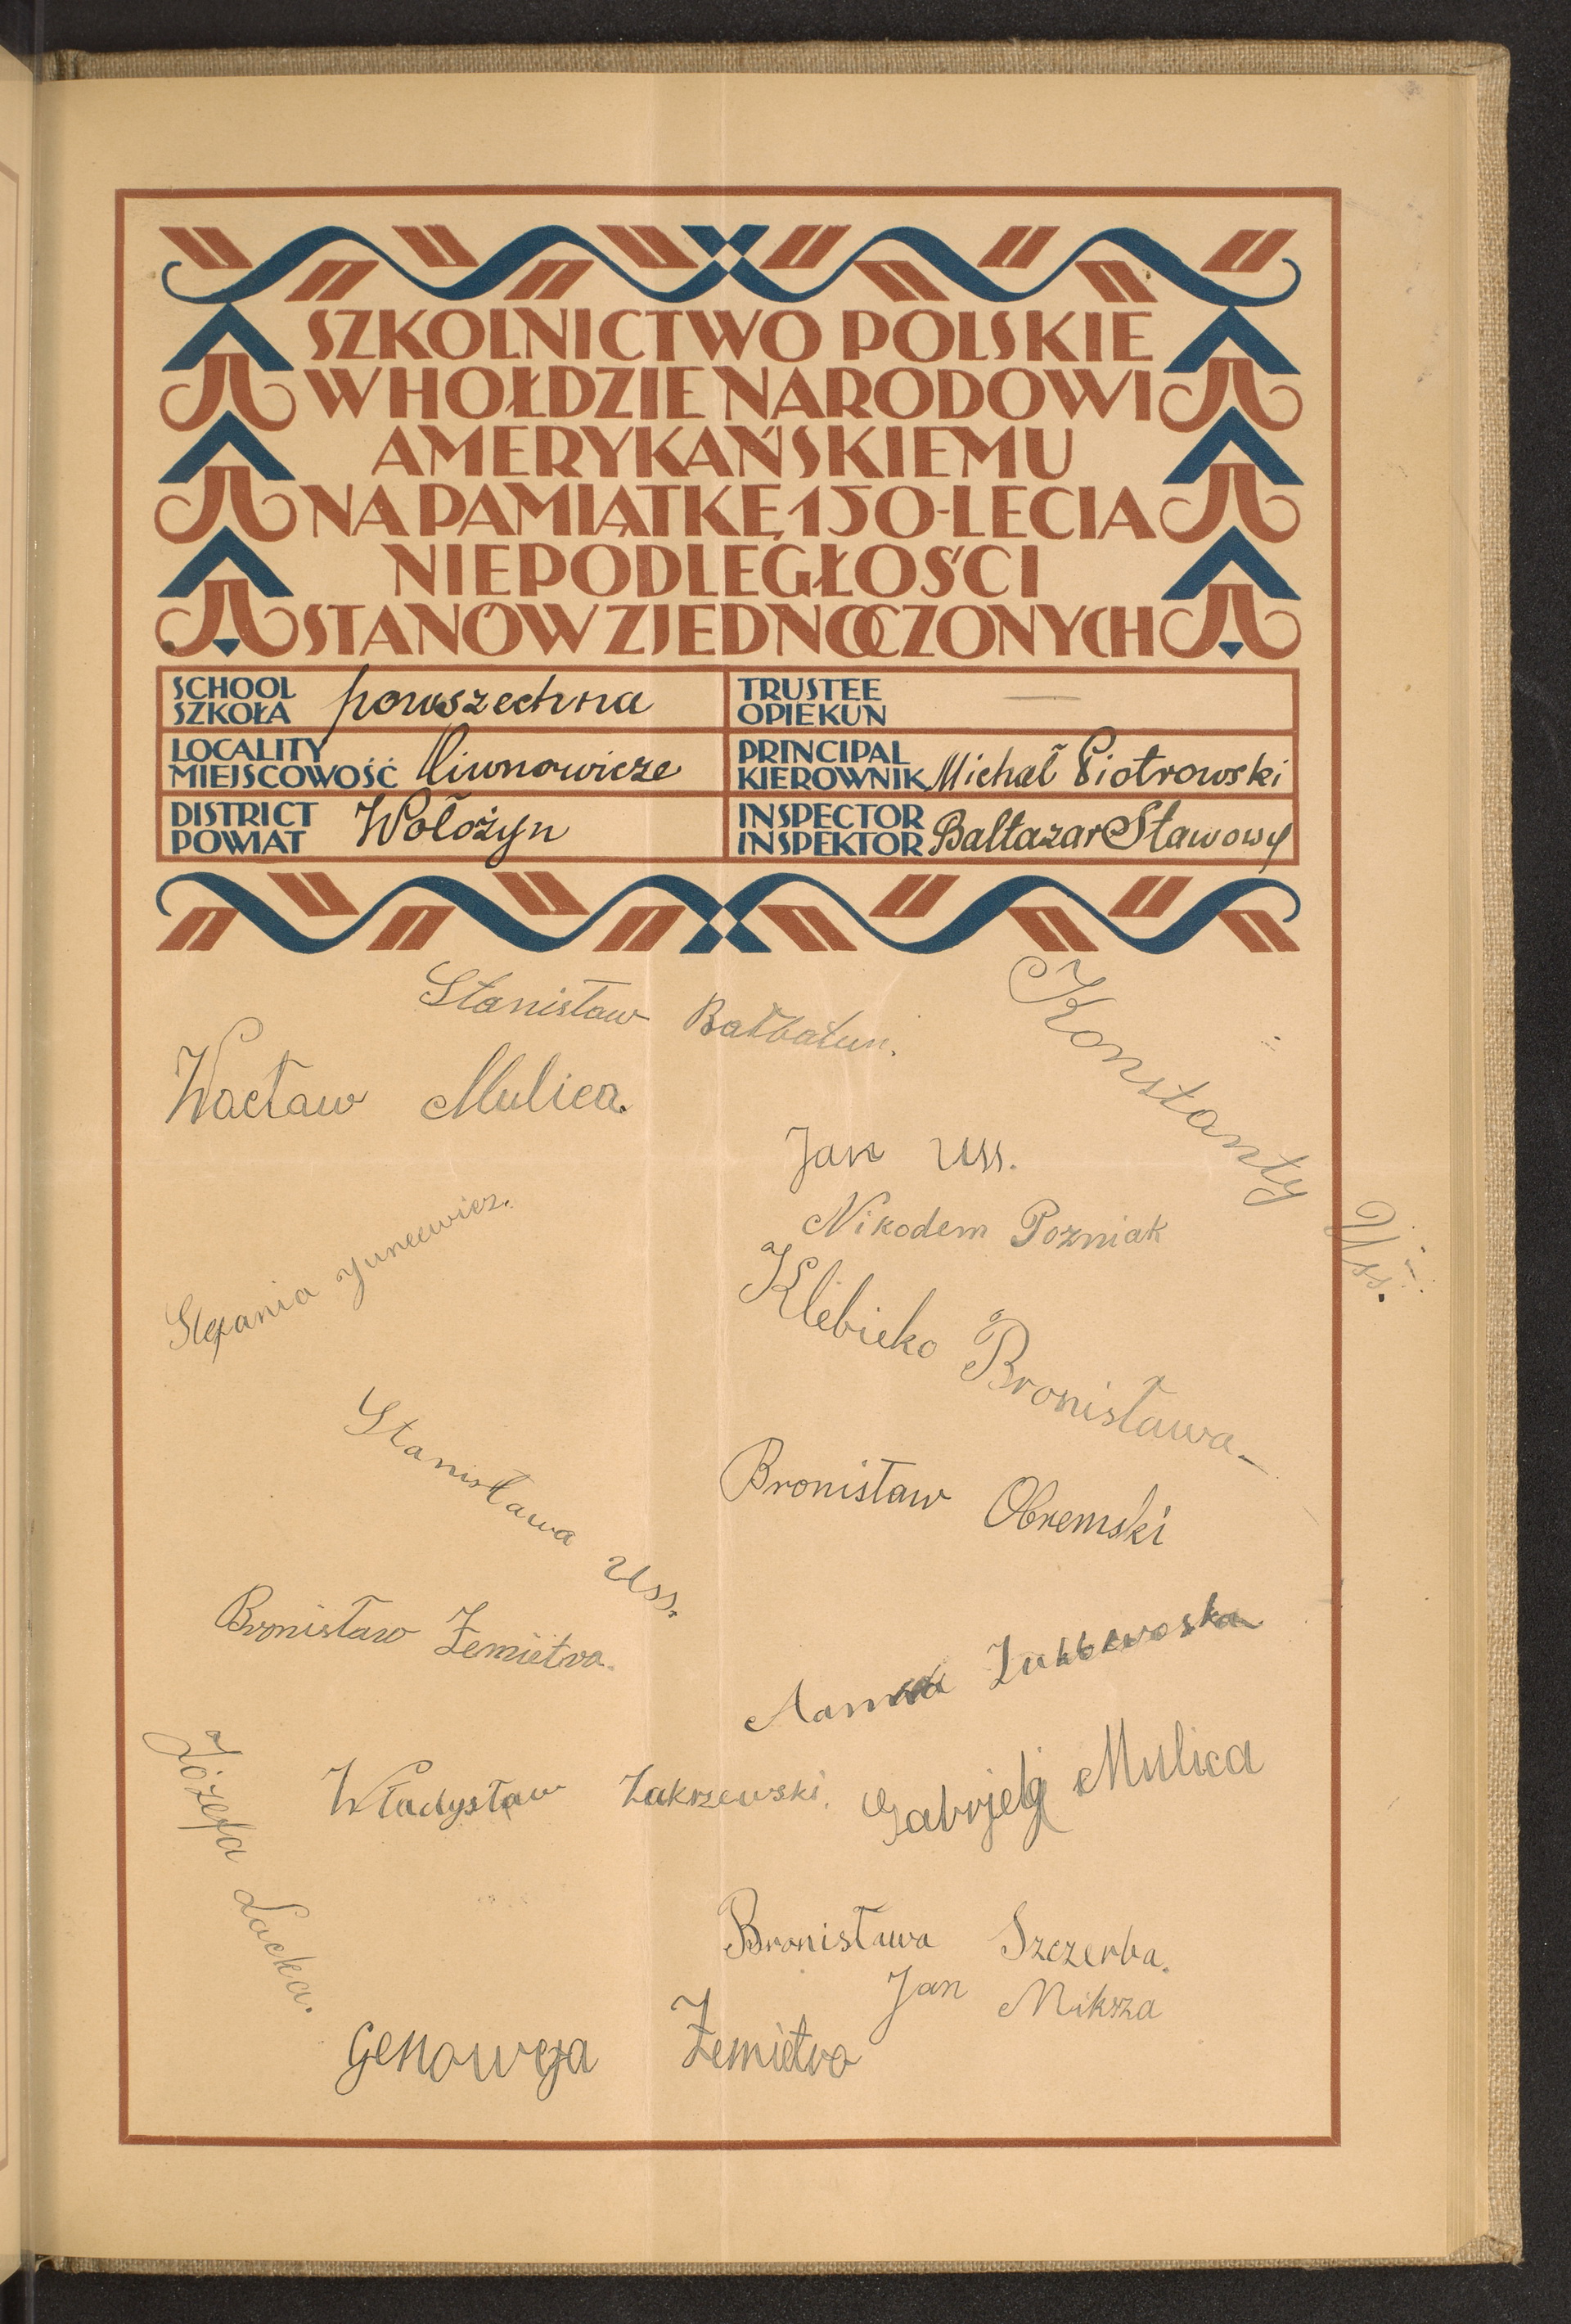 SZKOLNICTWO POLSKIE
W HOŁDZIE NARODOWI
AMERYKAŃSKIEMU
NA PAMIĄTKĘ 150-LECIA
NIEPODLEGŁOŚCI
STANÓW ZJEDNOCZONYCH
SCHOOL
SZKOŁA powszechna
TRUSTEE
OPIEKUN —
LOCALITY
MIEJSCOWOŚĆ
PRINCIPAL
KIEROWNIK Michał Piotrowski
DISTRICT
POWIAT Wołożyn
INSPECTOR
INSPEKTOR Baltazar Stawowy
Stanisław Bałbatun.
Konstanty Uss.
Wacław Mulica.
Jan Uss.
Nikodem Pozniak
Stefania Juncewicz.
Klebieko Bronisława
Stanisława Uss.
Bronisław Obremski
Bronisław Żemietra.
Józefa Lacka.
Władysław Zakrzewski.
Mulica
Bronisława Szczerba.
Jan Miksza
Genowefa Żemietro